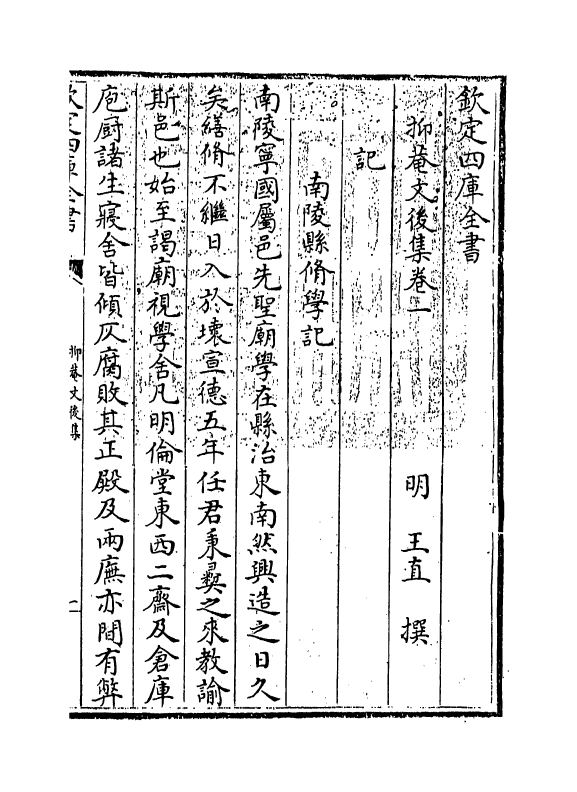 欽定四庫全書
抑菴文後集卷一
明　王直　撰
記
南陵縣脩學記
南陵寧國屬邑先聖廟學在縣治東南然興造之日久
矣繕脩不繼日入於壞宣德五年任君秉彛之來教諭
斯邑也始至謁廟視學舍凡明倫堂東西二齋及倉庫
庖厨諸生寢舍皆傾仄腐敗其正殿及兩廡亦間有弊
欽定四庫全書
抑菴文後集